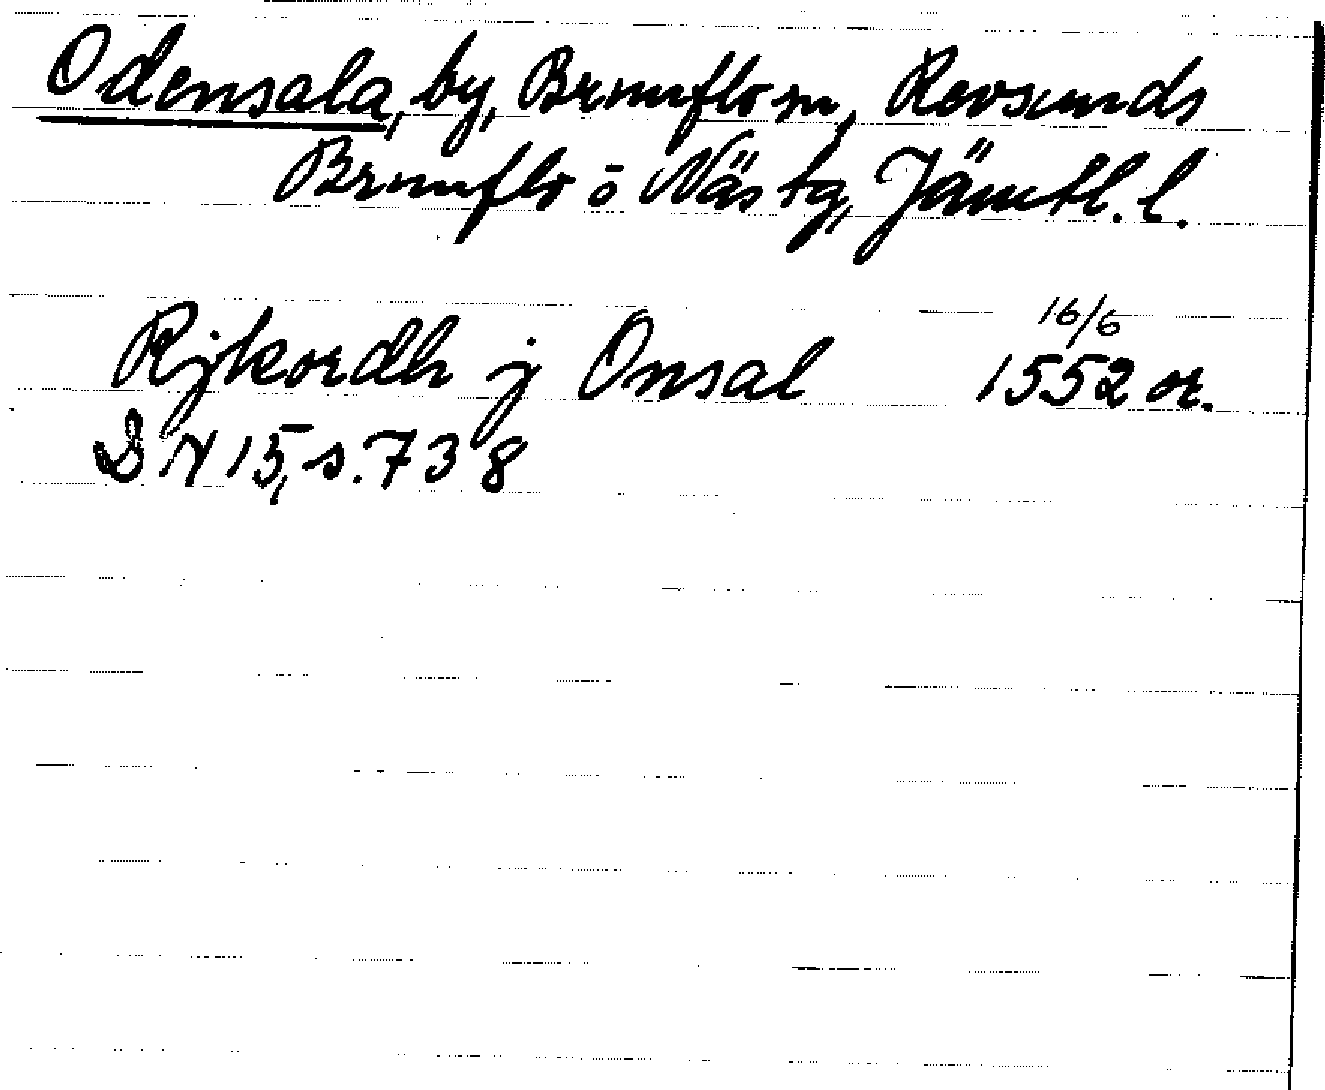 Odensala, by, Brunflo sn, Revsunds
Brunflo o Näs tg, Jämtl. l.
16/6
Rjkordh j Onsal 1552 or.
DN 15, s. 738